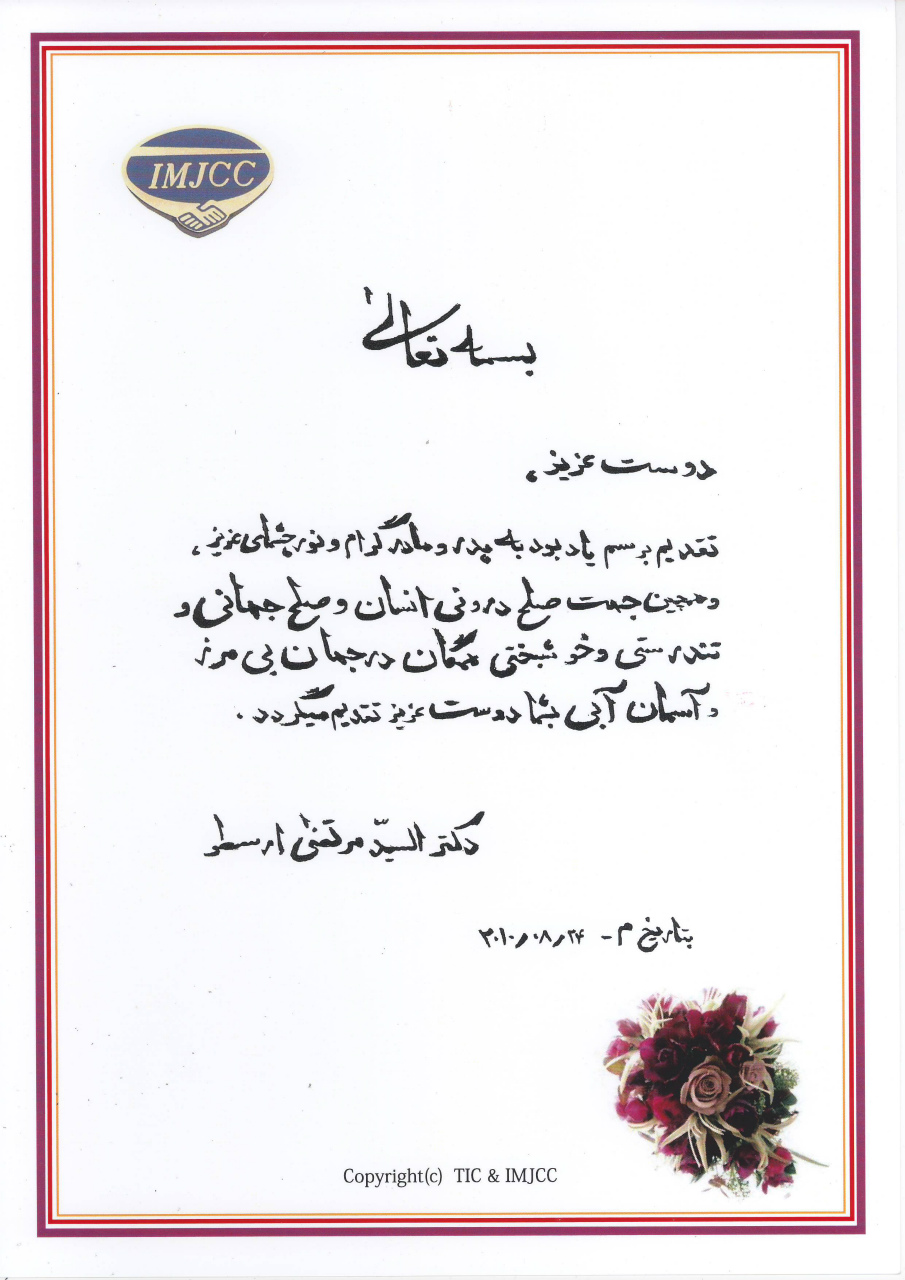 IMJCC
بسمه تعالیٰ
دوست عزیز ،
تقدیم برسم یادبود به پدر و مادر گرام و نور چشمهای عزیز ،
و همچنین جهت صلح درونی انسان و صلح جهانی و
تندرستی و خوشبختی همگان در جهان بی مرز
و آسمان آبی بشما دوست عزیز تقدیم میگردد .
دکتر السیّد مرتضیٰ ارسطو
بتاریخ م - ۲۰۱۰٫۰۸٫۲۴
Copyright(c) TIC & IMJCC